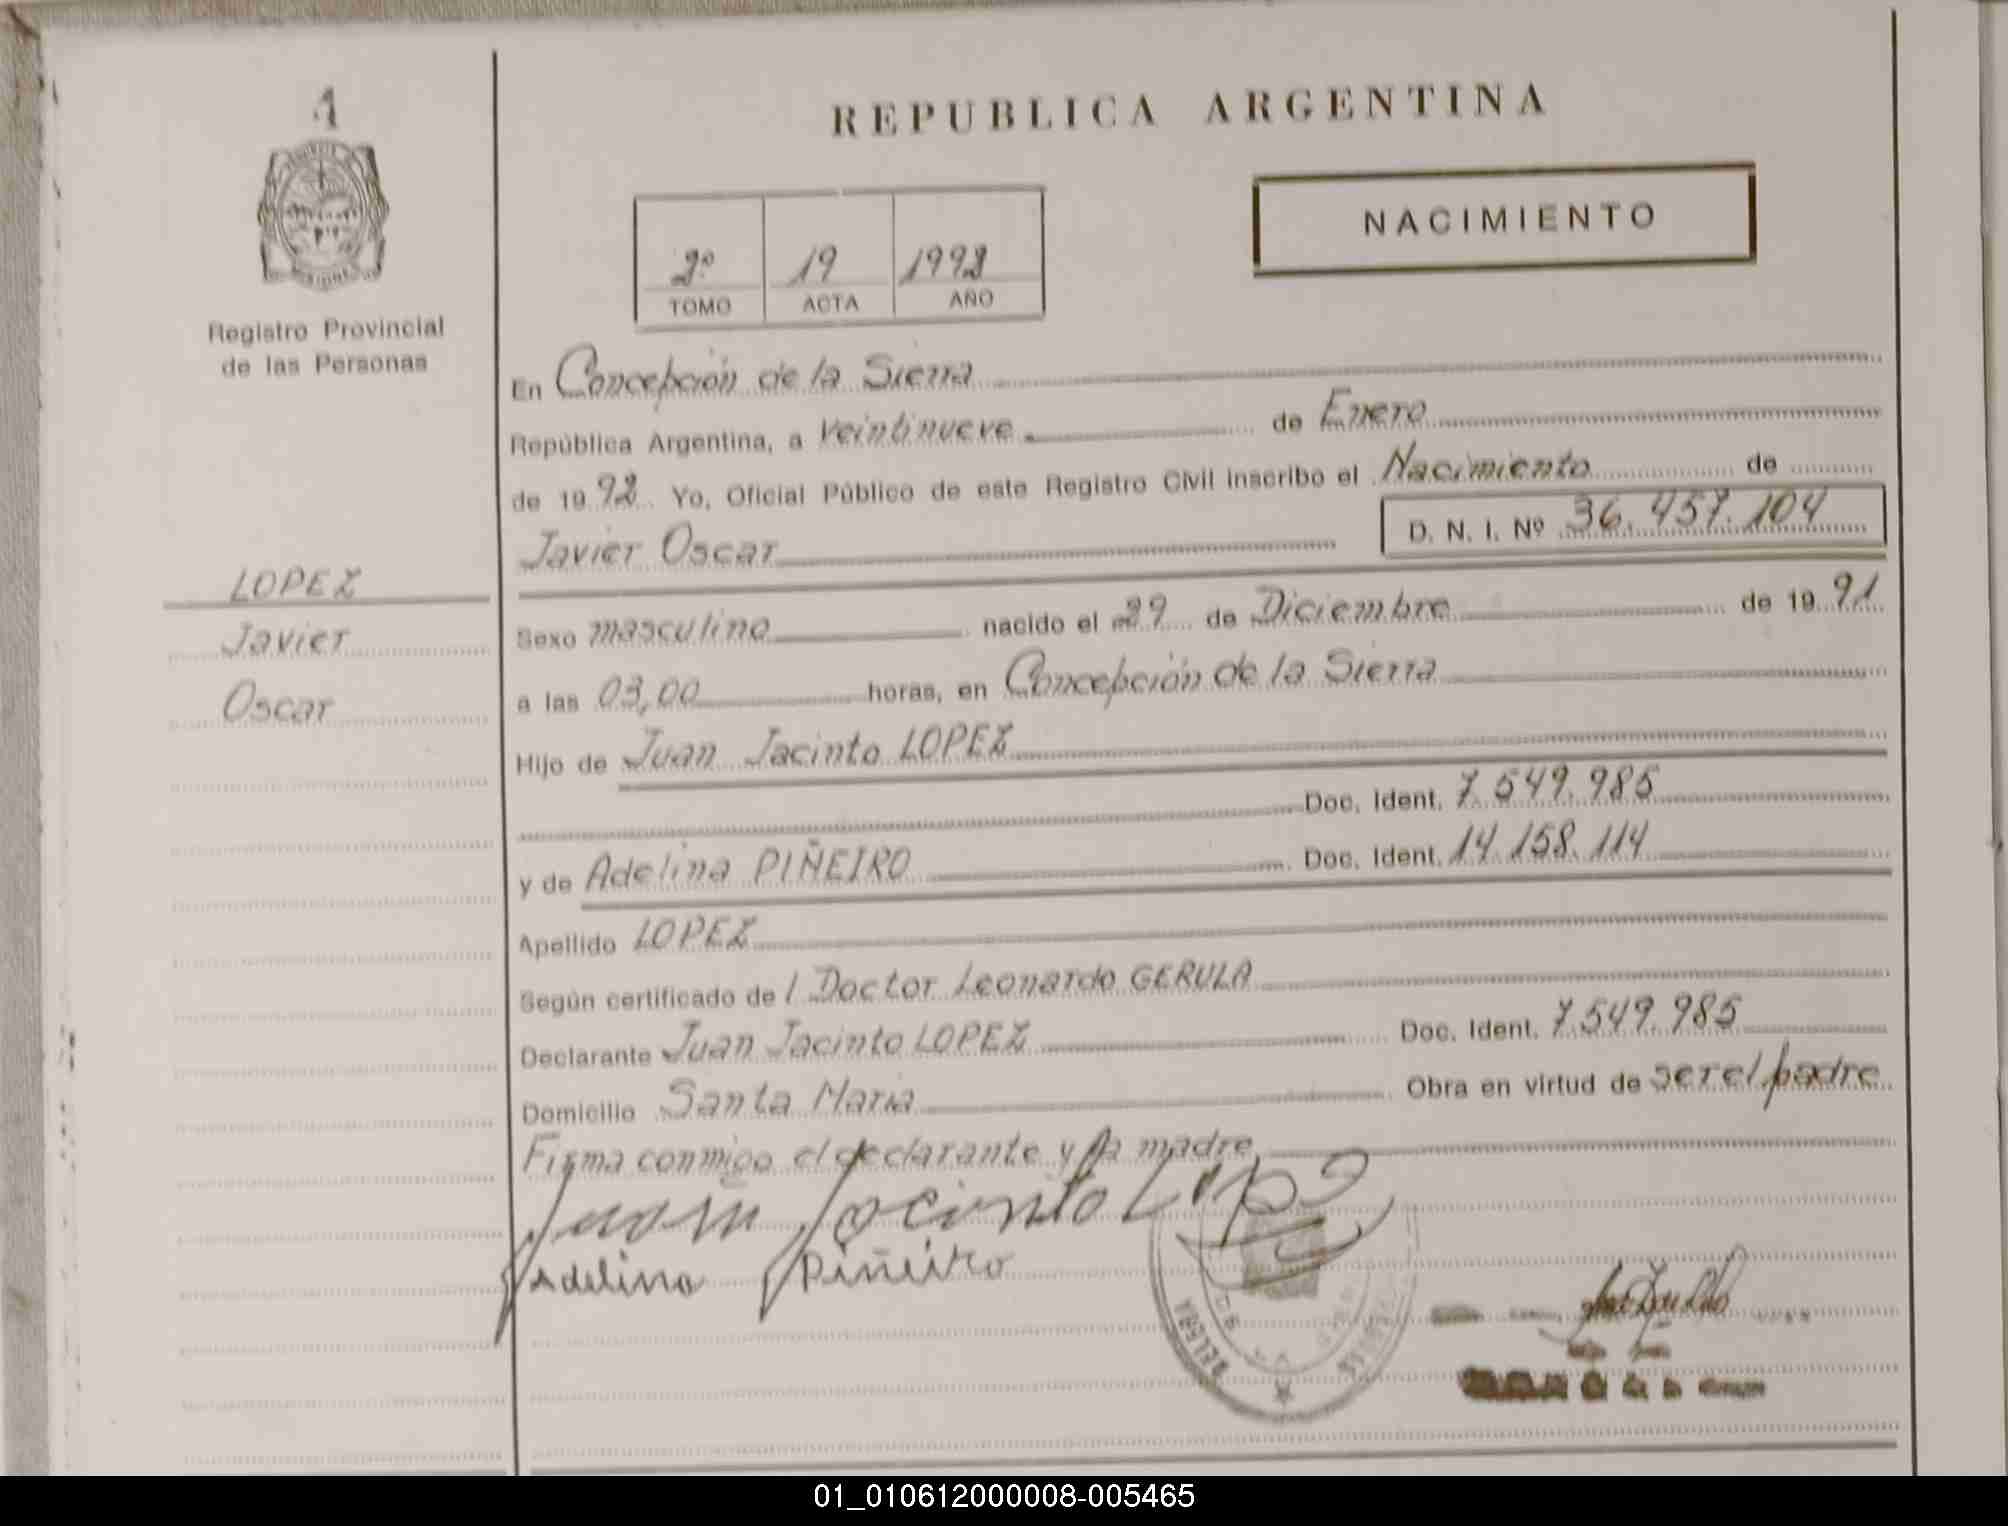 1
Registro Provincial
de las Personas
REPUBLICA ARGENTINA
NACIMIENTO
2º 19 1992
TOMO ACTA AÑO
En Concepción de la Sierra
República Argentina, a veintinueve de Enero
de 1992 Yo, Oficial Público de este Registro Civil inscribo el Nacimiento de
Javier Oscar D. N. I. Nº 36.457.104
LOPEZ
Javier
Oscar
Sexo masculino nacido el 29 de Diciembre de 1991
a las 03,00 horas, en Concepción de la Sierra
Hijo de Juan Jacinto LOPEZ
Doc. Ident. 7.549.985
y de Adelina PIÑEIRO Doc. Ident. 14.158.114
Apellido LOPEZ
Según certificado de l Doctor Leonardo GERULA
Declarante Juan Jacinto LOPEZ Doc. Ident. 7.549.985
Domicilio Santa Maria Obra en virtud de ser el padre
Firma conmigo el declarante y la madre
Juan Jacinto Lopez
Adelina Piñeiro
01_010612000008-005465